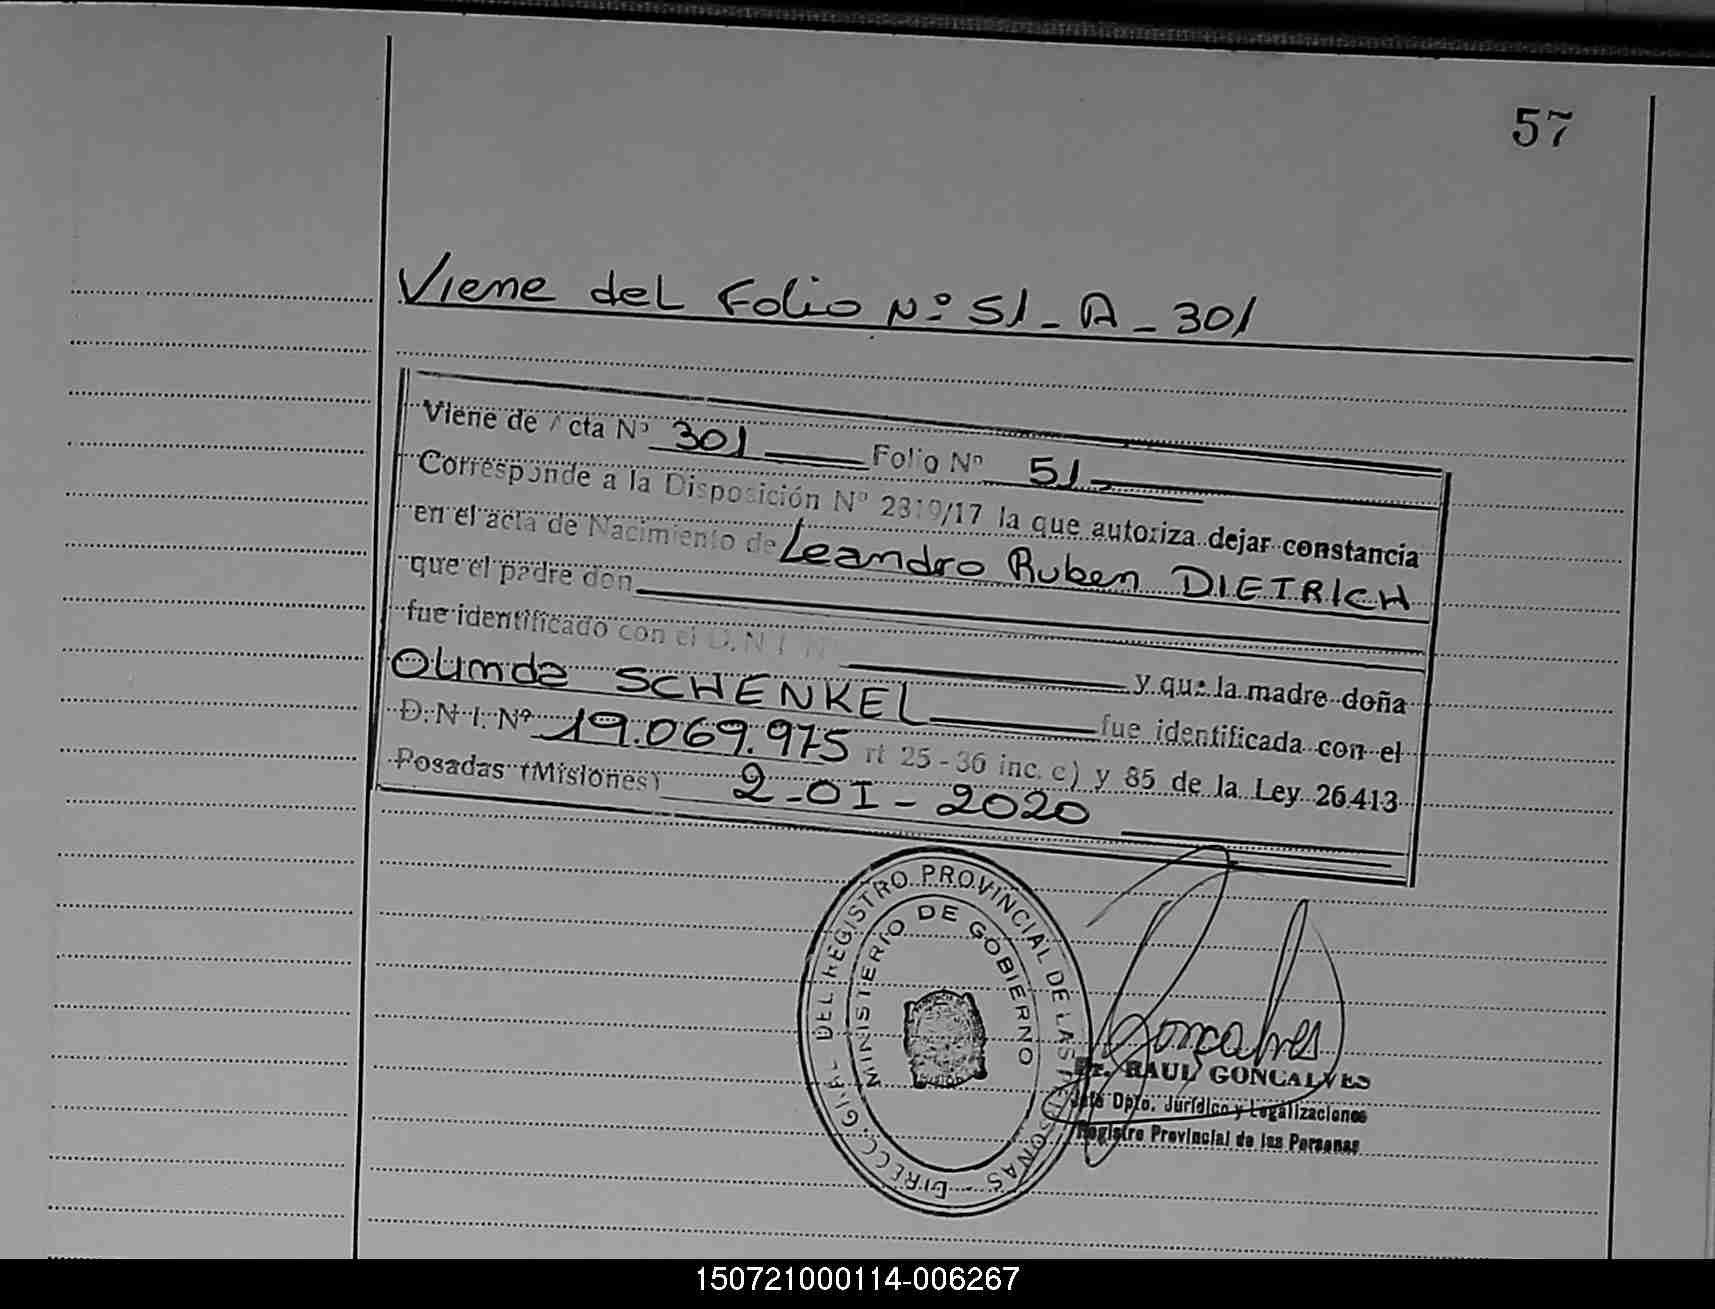 57
Viene del Folio Nº 51 - A - 301
Viene de Acta Nº 301 Folio Nº 51
Corresponde a la Disposición Nº 2819/17 la que autoriza dejar constancia
en el acta de Nacimiento de Leandro Ruben DIETRICH
que el padre don
fue identificado con el D.N.I. Nº y que la madre doña
Olinda SCHENKEL fue identificada con el
D.N.I. Nº 19.069.975 rt 25-36 inc. c) y 85 de la Ley 26413
Posadas (Misiones) 2-01-2020
DIRECC. GRAL. DEL REGISTRO PROVINCIAL DE LAS PERSONAS
MINISTERIO DE GOBIERNO
Goncalves
Dr. RAUL GONCALVES
Jefe Dpto. Jurídico y Legalizaciones
Registro Provincial de las Personas
150721000114-006267